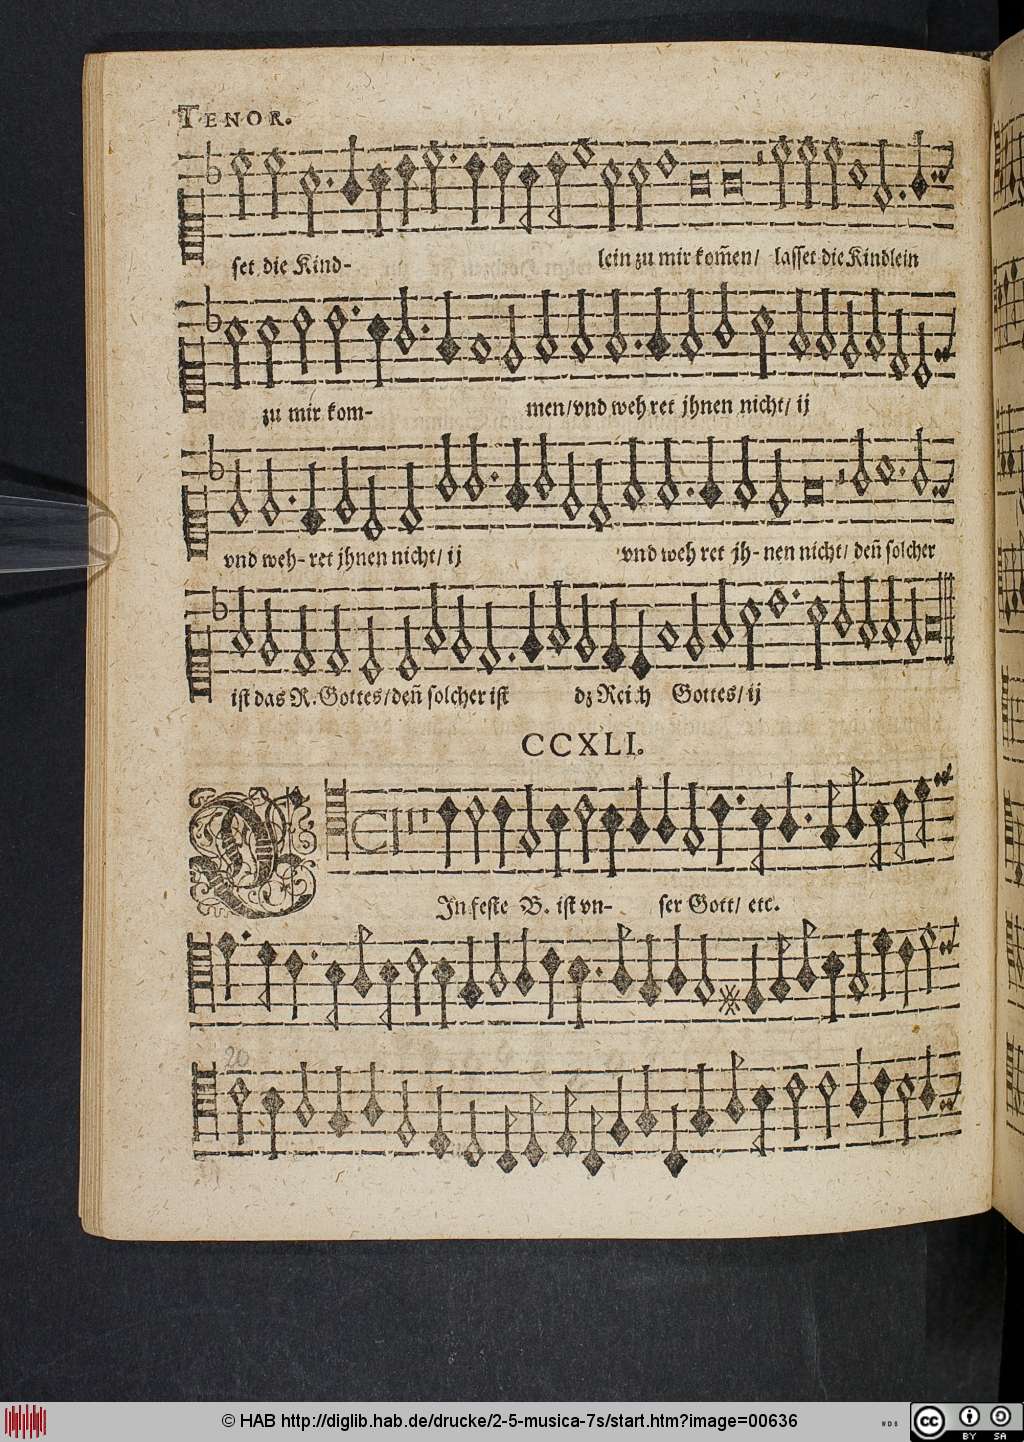 TENOR.
set die Kind- lein zu mir kom̃en/ lasset die Kindlein
zu mir kom- men/vnd weh ret jhnen nicht/ ij
vnd weh- ret jhnen nicht/ ij vnd weh ret jh- nen nicht/ deñ solcher
ist das R. Gottes/deñ solcher ist dz Reich Gottes/ ij
CCXLI.
EJn feste B. ist vn- ser Gott/ etc.
20
© HAB http://diglib.hab.de/drucke/2-5-musica-7s/start.htm?image=00636
cc BY SA